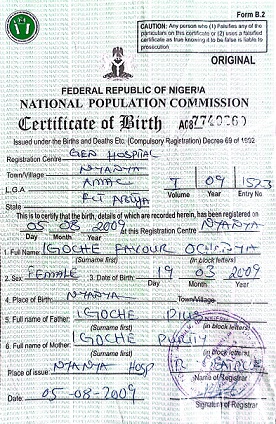 Form B.2
CAUTION: Any person who (1) Falsifies any of the particulars on this certificate or (2) uses a falsified certificate as true knowing it to be false is liable to prosecution
ORIGINAL
FEDERAL REPUBLIC OF NIGERIA
NATIONAL POPULATION COMMISSION
Certificate of Birth
Issued under the Births and Deaths Etc. (Compulsory Registration) Decree 69 of 1992
Registration Centre GEN HOSPITAL
Town/Village NYANYA
L.G.A AMAC 7 09 1523
Volume Year Entry No
State FCT ABUJA
This is to certify that the birth, details of which are recorded herein, has been registered on
05 08 2009 at this Registration Centre NYANYA
Day Month Year
1. Full Name: IGOCHE FAVOUR
(Surname first) (in block letters)
2. Sex: FEMALE 3. Date of Birth: 19 03 2009
Day Month Year
4. Place of Birth: NYANYA Town/Village
5. Full name of Father: IGOCHE PIUS
(Surname first) (in block letters)
6. Full name of Mother: IGOCHE PURITY
(Surname first) (in block letters)
Place of issue: NYANYA HOSP
Name of Registrar
Date: 05-08-2009
Signature of Registrar